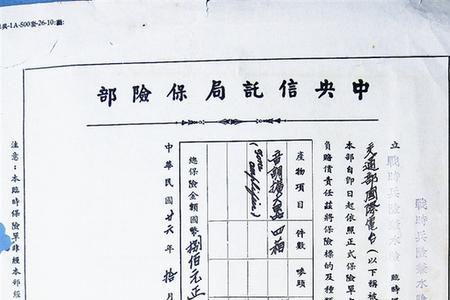 中央信託局保險部
立
戰時兵險兼水險
臨時
戰時兵險兼水
交通部國際電台(以下稱被
本部自即日起依照正式保險單
負賠償責任茲將保險標的及種
產物項目
件數
嘜頭
音調擴大器
四箱
(Tone amplifier)
總保險金額國幣捌佰元正
中華民國廿六年拾月
注意:本臨時保險單非經本部經